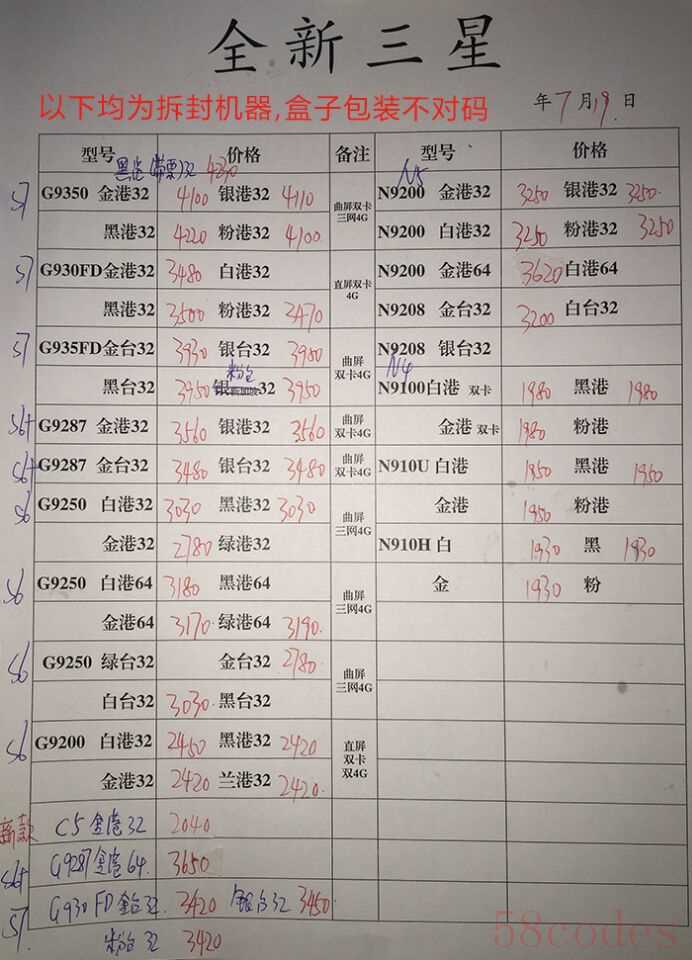 全新三星
以下均为拆封机器,盒子包装不对码
年 7 月 19 日
型号 价格 备注 型号 价格
黑港(带票)32 4230
S7 G9350 金港32 4100 银港32 4110 曲屏双卡三网4G N5 N9200 金港32 3250 银港32 3250
黑港32 4220 粉港32 4100 N9200 白港32 3250 粉港32 3250
S7 G930FD金港32 3480 白港32 直屏双卡4G N9200 金港64 3620 白港64
黑港32 3500 粉港32 3470 N9208 金台32 3200 白台32
S7 G935FD金台32 3930 银台32 3950 曲屏双卡4G N9208 银台32
黑台32 3950 粉台 银 32 3950 N4 N9100白港 双卡 1980 黑港 1980
S6+ G9287 金港32 3560 银港32 3560 曲屏双卡4G 金港 双卡 1980 粉港
S6+ G9287 金台32 3480 银台32 3480 曲屏双卡4G N910U 白港 1950 黑港 1950
S6 G9250 白港32 3030 黑港32 3030 曲屏三网4G 金港 1950 粉港
金港32 2780 绿港32 N910H 白 1930 黑 1930
S6 G9250 白港64 3180 黑港64 曲屏三网4G 金 1930 粉
金港64 3170 绿港64 3190
S6 G9250 绿台32 金台32 2780 曲屏三网4G
白台32 3030 黑台32
S6 G9200 白港32 2450 黑港32 2420 直屏双卡双4G
金港32 2420 兰港32 2420
新款 C5 金港 32 2040
S6+ G9287 金港 64 3650
S7 G930FD 金台32 3420 银台32 3450
粉台 32 3420
58codes